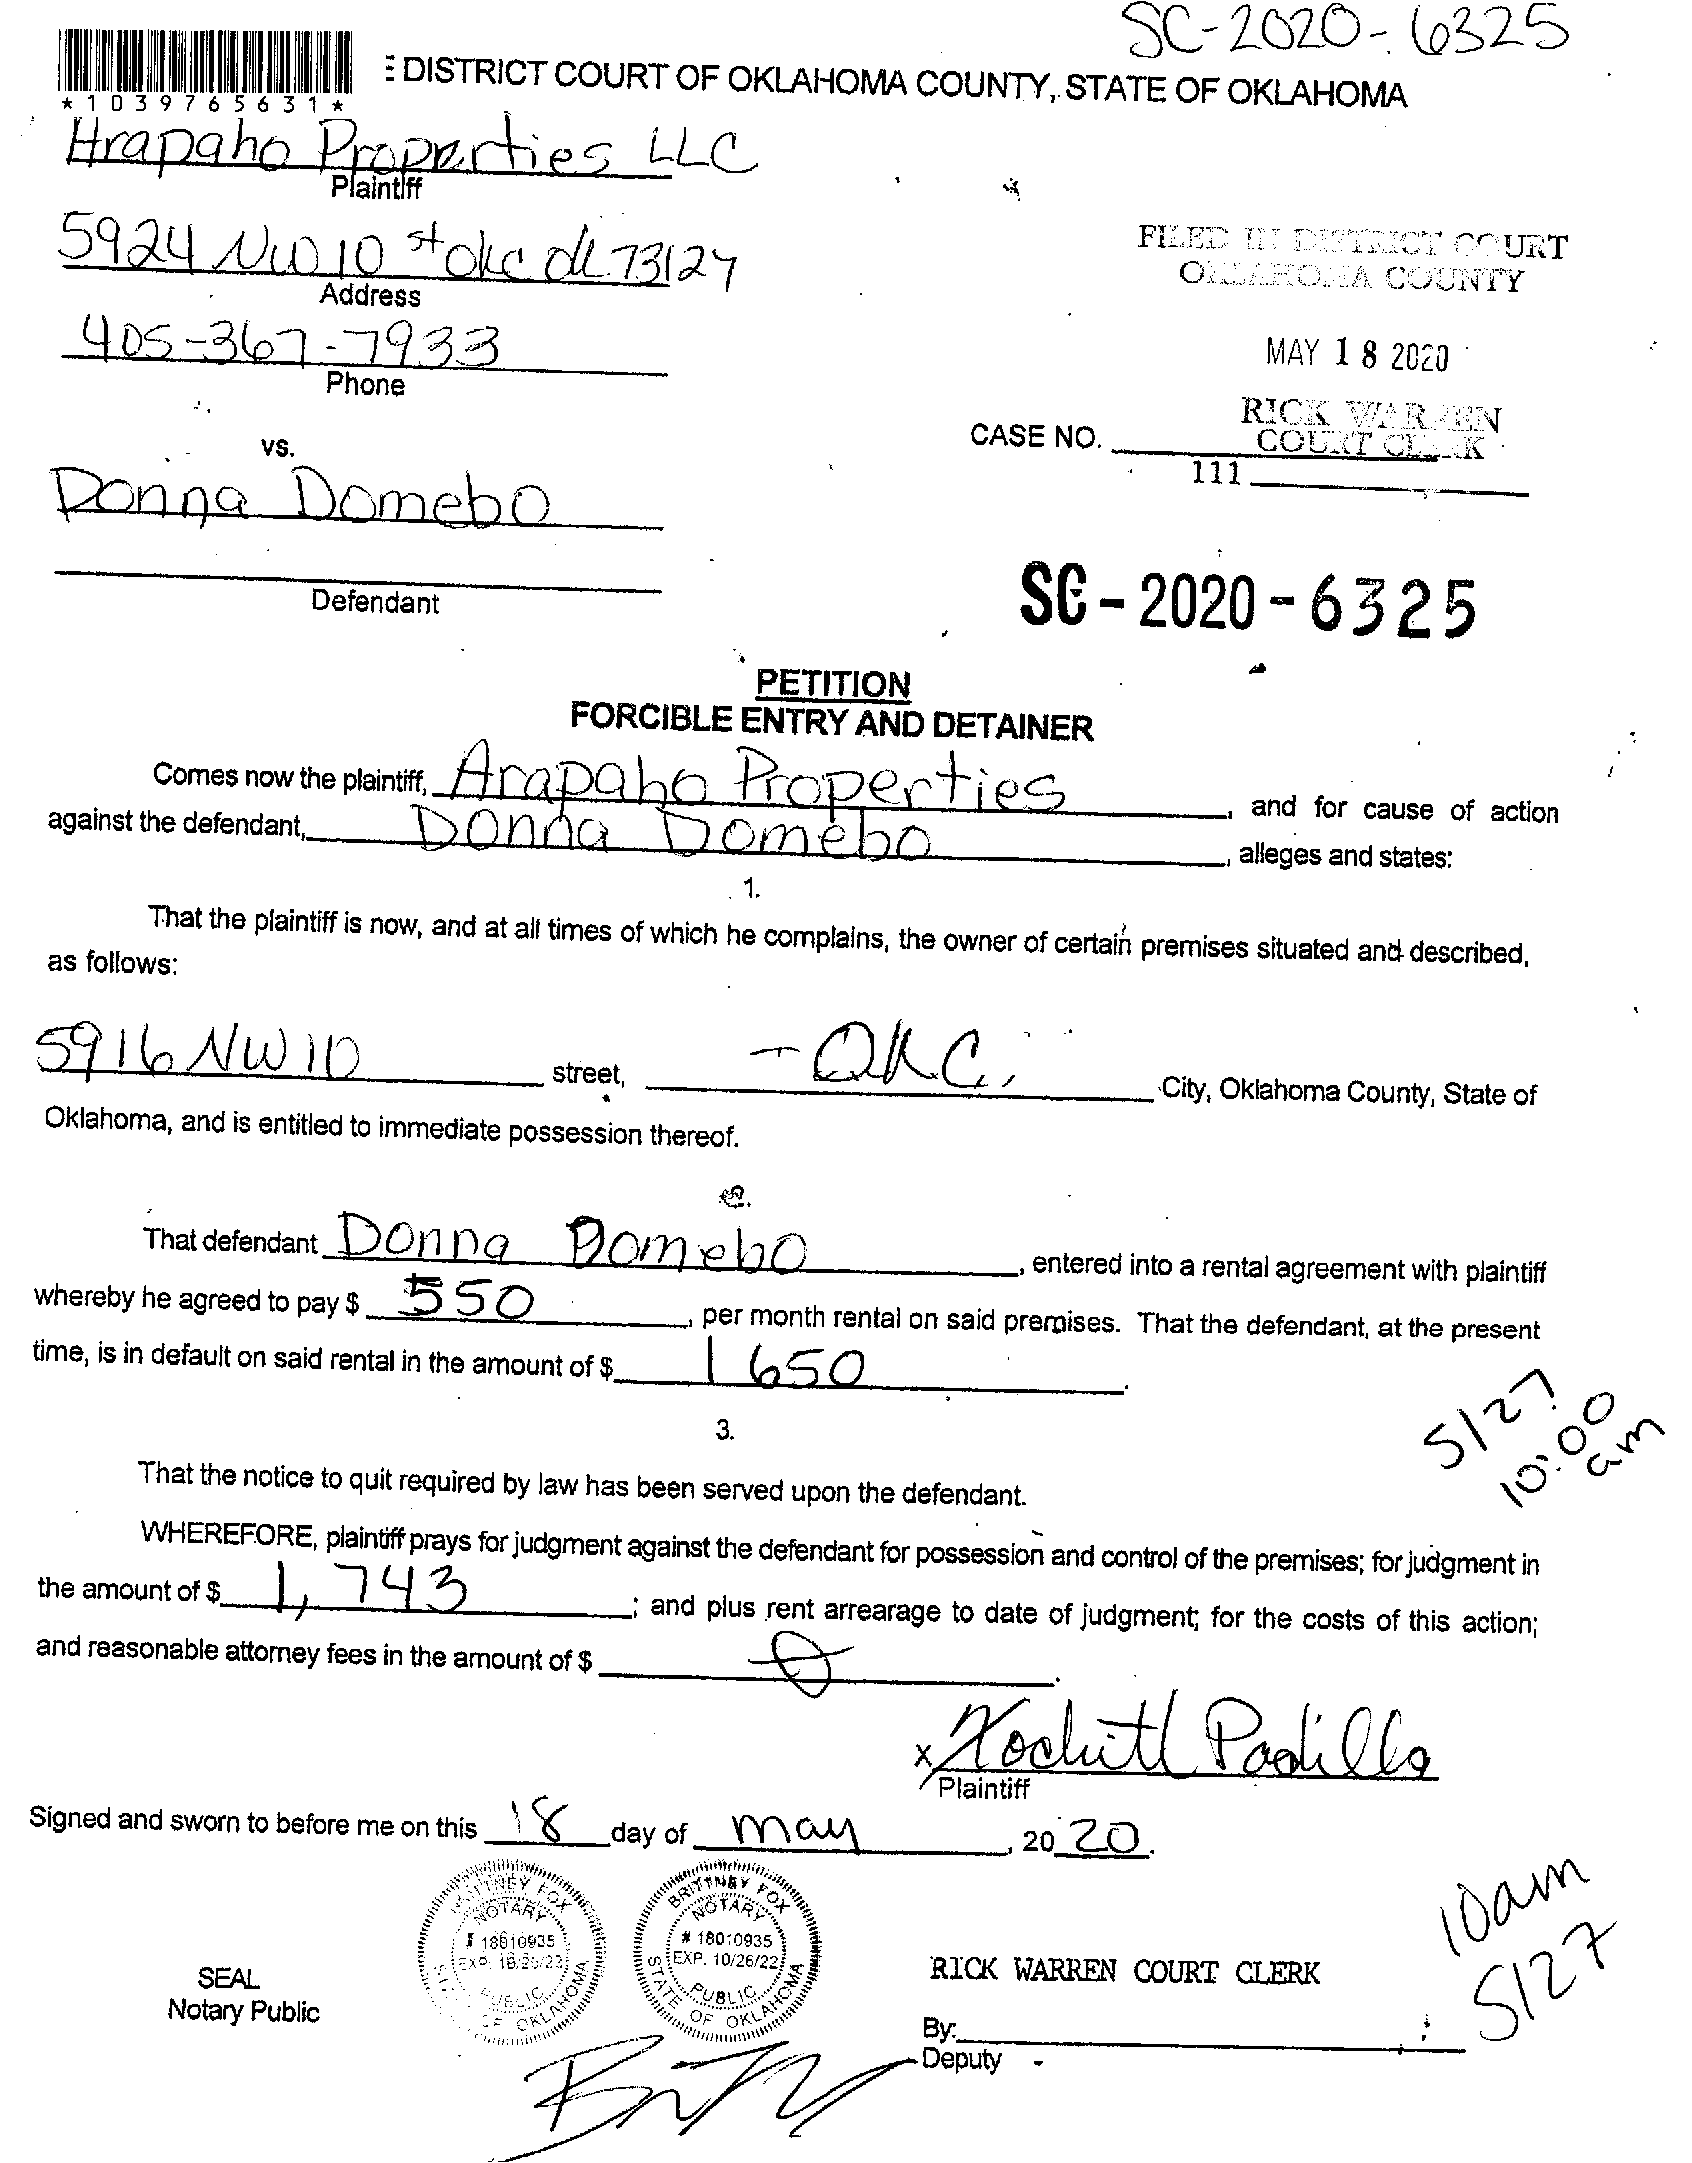 SC-2020-6325
DISTRICT COURT OF OKLAHOMA COUNTY, STATE OF OKLAHOMA
*1039765631*
Arapaho Properties LLC
Plaintiff
5924 NW 10 st okc ok 73127
Address
FILED IN DISTRICT COURT
OKLAHOMA COUNTY
405-367-7933
Phone
MAY 18 2020
RICK WARREN
COURT CLERK
CASE NO.
111
vs.
Donna Domebo
Defendant
SC-2020-6325
PETITION
FORCIBLE ENTRY AND DETAINER
Comes now the plaintiff, Arapaho Properties, and for cause of action
against the defendant, Donna Domebo, alleges and states:
1.
That the plaintiff is now, and at all times of which he complains, the owner of certain premises situated and described,
as follows:
5916 NW 10 street, - OKC. City, Oklahoma County, State of
Oklahoma, and is entitled to immediate possession thereof.
2.
That defendant Donna Domebo, entered into a rental agreement with plaintiff
whereby he agreed to pay $ 550, per month rental on said premises. That the defendant, at the present
time, is in default on said rental in the amount of $ 1650.
5/27
10:00
am
3.
That the notice to quit required by law has been served upon the defendant.
WHEREFORE, plaintiff prays for judgment against the defendant for possession and control of the premises; for judgment in
the amount of $ 1,743; and plus rent arrearage to date of judgment; for the costs of this action;
and reasonable attorney fees in the amount of $ 0.
x Xochitl Padilla
Plaintiff
Signed and sworn to before me on this 18 day of may, 2020.
BRITTNEY FOX
NOTARY
# 18010935
EXP. 10/26/22
PUBLIC
STATE OF OKLAHOMA
BRITTNEY FOX
NOTARY
# 18010935
EXP. 10/26/22
PUBLIC
STATE OF OKLAHOMA
SEAL
Notary Public
RICK WARREN COURT CLERK
By:
Deputy
10am
5/27